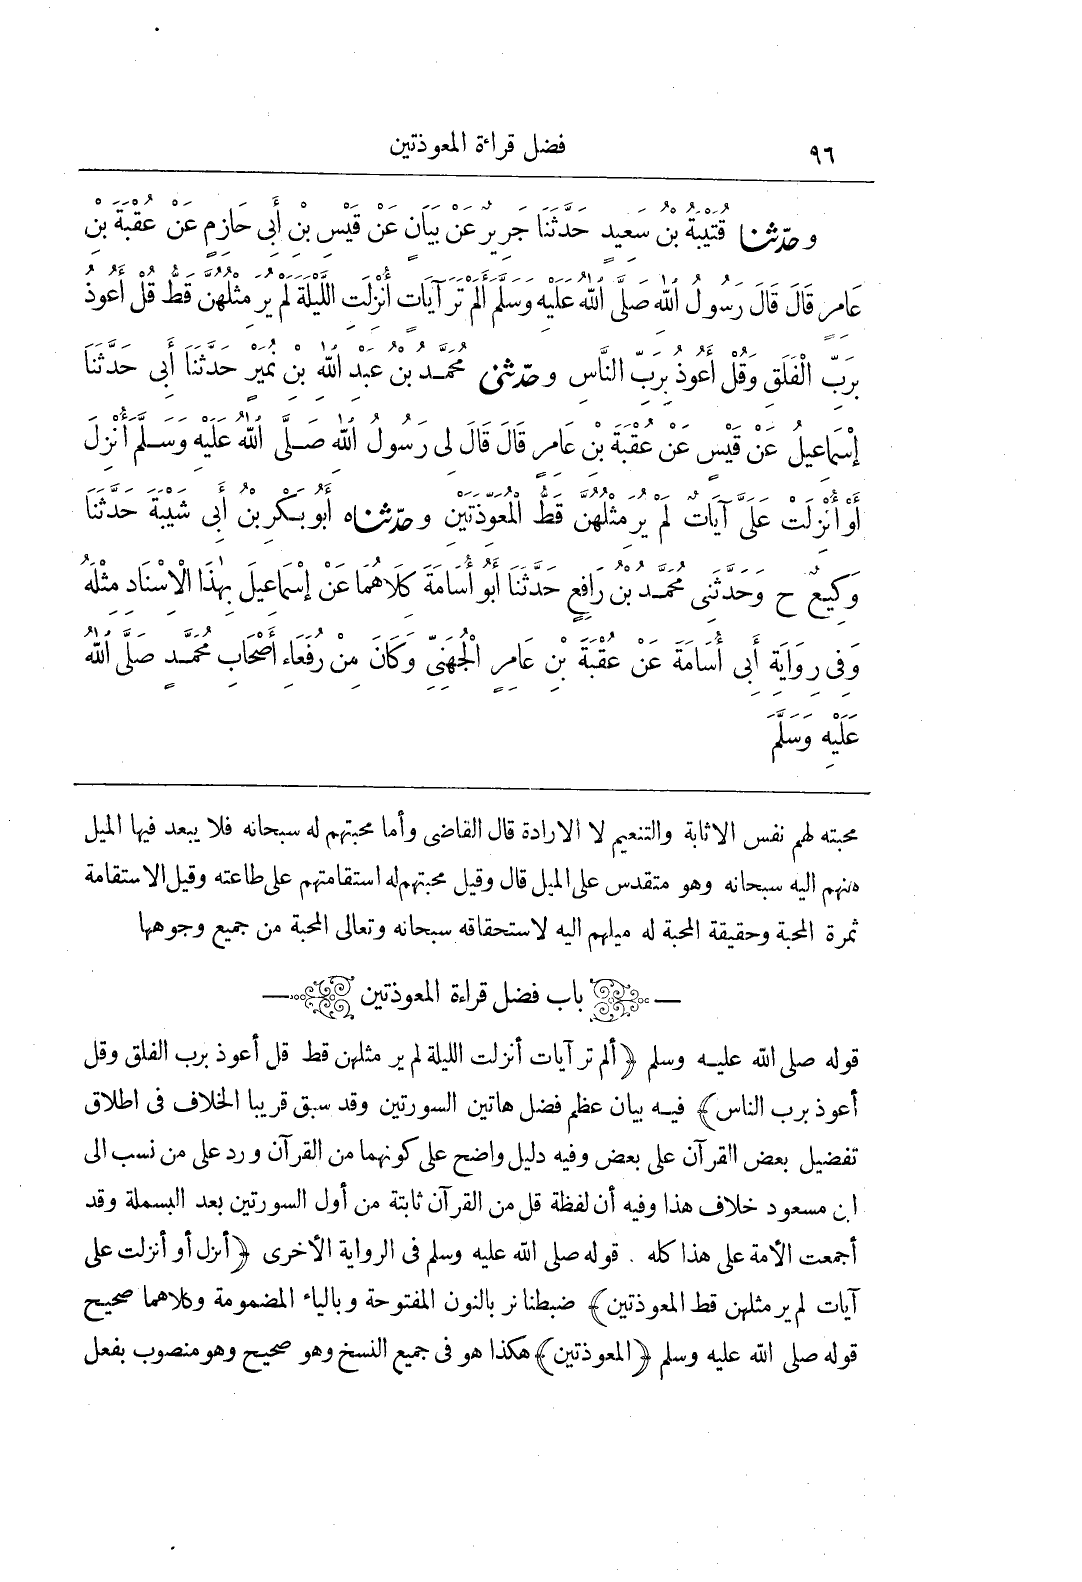 ٩٦
فضل قراءة المعوذتين
و حدّثنا قُتَيْبَةُ بْنُ سَعِيدٍ حَدَّثَنَا جَرِيرٌ عَنْ بَيَانٍ عَنْ قَيْسِ بْنِ أَبِي حَازِمٍ عَنْ عُقْبَةَ بْنِ
عَامِرٍ قَالَ قَالَ رَسُولُ اللهِ صَلَّى اللهُ عَلَيْهِ وَسَلَّمَ أَلَمْ تَرَ آيَاتٍ أُنْزِلَتِ اللَّيْلَةَ لَمْ يُرَ مِثْلُهُنَّ قَطُّ قُلْ أَعُوذُ
بِرَبِّ الْفَلَقِ وَقُلْ أَعُوذُ بِرَبِّ النَّاسِ و حدّثني مُحَمَّدُ بْنُ عَبْدِ اللهِ بْنِ نُمَيْرٍ حَدَّثَنَا أَبِي حَدَّثَنَا
إِسْمَاعِيلُ عَنْ قَيْسٍ عَنْ عُقْبَةَ بْنِ عَامِرٍ قَالَ قَالَ لِي رَسُولُ اللهِ صَلَّى اللهُ عَلَيْهِ وَسَلَّمَ أُنْزِلَ
أَوْ أُنْزِلَتْ عَلَيَّ آيَاتٌ لَمْ يُرَ مِثْلُهُنَّ قَطُّ الْمُعَوِّذَتَيْنِ و حدّثناه أَبُو بَكْرِ بْنُ أَبِي شَيْبَةَ حَدَّثَنَا
وَكِيعٌ ح وَحَدَّثَنِي مُحَمَّدُ بْنُ رَافِعٍ حَدَّثَنَا أَبُو أُسَامَةَ كِلَاهُمَا عَنْ إِسْمَاعِيلَ بِهٰذَا الْإِسْنَادِ مِثْلَهُ
وَفِي رِوَايَةِ أَبِي أُسَامَةَ عَنْ عُقْبَةَ بْنِ عَامِرٍ الْجُهَنِيِّ وَكَانَ مِنْ رُفَعَاءِ أَصْحَابِ مُحَمَّدٍ صَلَّى اللهُ
عَلَيْهِ وَسَلَّمَ
محبته لهم نفس الاثابة والتنعيم لا الارادة قال القاضى وأما محبتهم له سبحانه فلا يبعد فيها الميل
منهم اليه سبحانه وهو متقدس على الميل قال وقيل محبتهم له استقامتهم على طاعته وقيل الاستقامة
ثمرة المحبة وحقيقة المحبة له ميلهم اليه لاستحقاقه سبحانه وتعالى المحبة من جميع وجوهها
باب فضل قراءة المعوذتين
قوله صلى الله عليه وسلم ﴿ألم تر آيات أنزلت الليلة لم ير مثلهن قط قل أعوذ برب الفلق وقل
أعوذ برب الناس﴾ فيه بيان عظم فضل هاتين السورتين وقد سبق قريبا الخلاف فى اطلاق
تفضيل بعض القرآن على بعض وفيه دليل واضح على كونهما من القرآن ورد على من نسب الى
ابن مسعود خلاف هذا وفيه أن لفظة قل من القرآن ثابتة من أول السورتين بعد البسملة وقد
أجمعت الأمة على هذا كله . قوله صلى الله عليه وسلم فى الرواية الأخرى ﴿أنزل أو أنزلت على
آيات لم ير مثلهن قط المعوذتين﴾ ضبطنا نر بالنون المفتوحة وبالياء المضمومة وكلاهما صحيح
قوله صلى الله عليه وسلم ﴿المعوذتين﴾ هكذا هو فى جميع النسخ وهو صحيح وهو منصوب بفعل